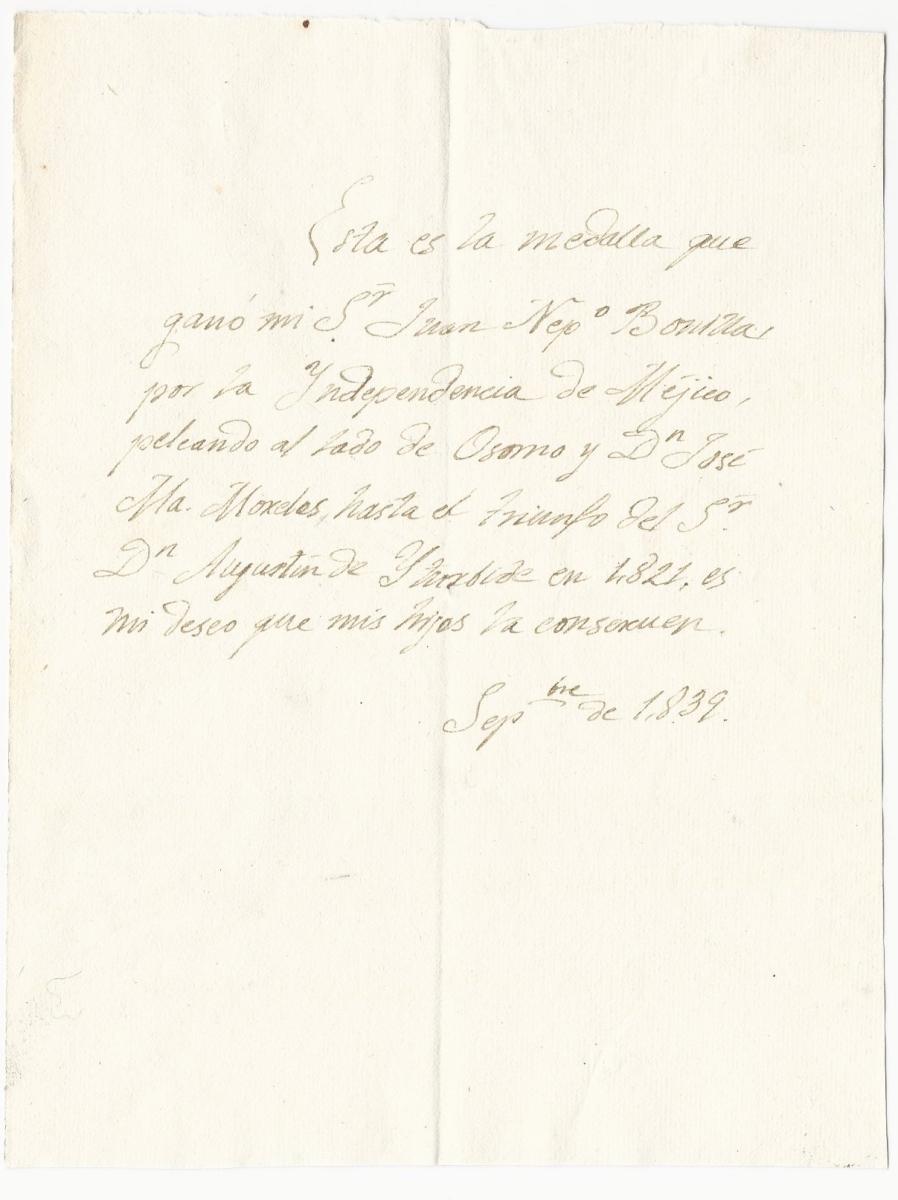 Esta es la medalla que
ganó mi Sr. Juan Nepo Bonilla,
por la Yndependencia de Méjico,
peleando al lado de Osorno y Dn José
Ma. Morelos, hasta el triunfo del Sr.
Dn Augustin de Yturbide en 1,821, es
mi deseo que mis hijos la conserven.
Sepbre de 1,839.